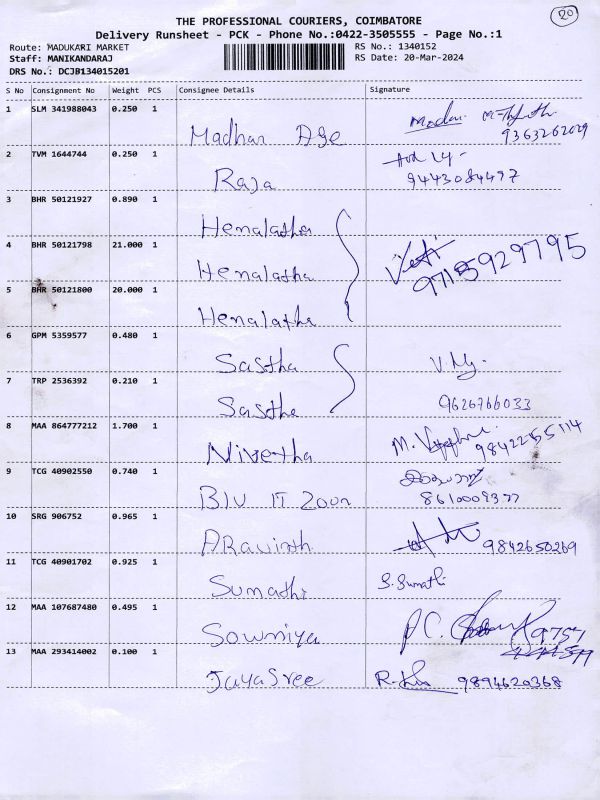 20
THE PROFESSIONAL COURIERS, COIMBATORE
Delivery Runsheet - PCK - Phone No.:0422-3505555 - Page No.:1
Route: MADUKARI MARKET
RS No.: 1340152
Staff: MANIKANDARAJ
RS Date: 20-Mar-2024
DRS No.: DCJB134015201
S No Consignment No Weight PCS Consignee Details Signature
1 SLM 341988043 0.250 1
Madhan Age
9363262029
2 TVM 1644744 0.250 1
Raja 9443084497
3 BHR 50121927 0.890 1
Hemalatha
4 BHR 50121798 21.000 1
Hemalatha 9715929795
5 BHR 50121800 20.000 1
Hemalatha
6 GPM 5359577 0.480 1
Sastha
7 TRP 2536392 0.210 1
Sastha 9626766033
8 MAA 864777212 1.700 1
Nivetha 9842255114
9 TCG 40902550 0.740 1
8610009377
10 SRG 906752 0.965 1
Aravinth 9842650269
11 TCG 40901702 0.925 1
Sumathi S. Sumathi
12 MAA 107687480 0.495 1
Sowmiya
13 MAA 293414002 0.100 1
Jayasree 9894620368